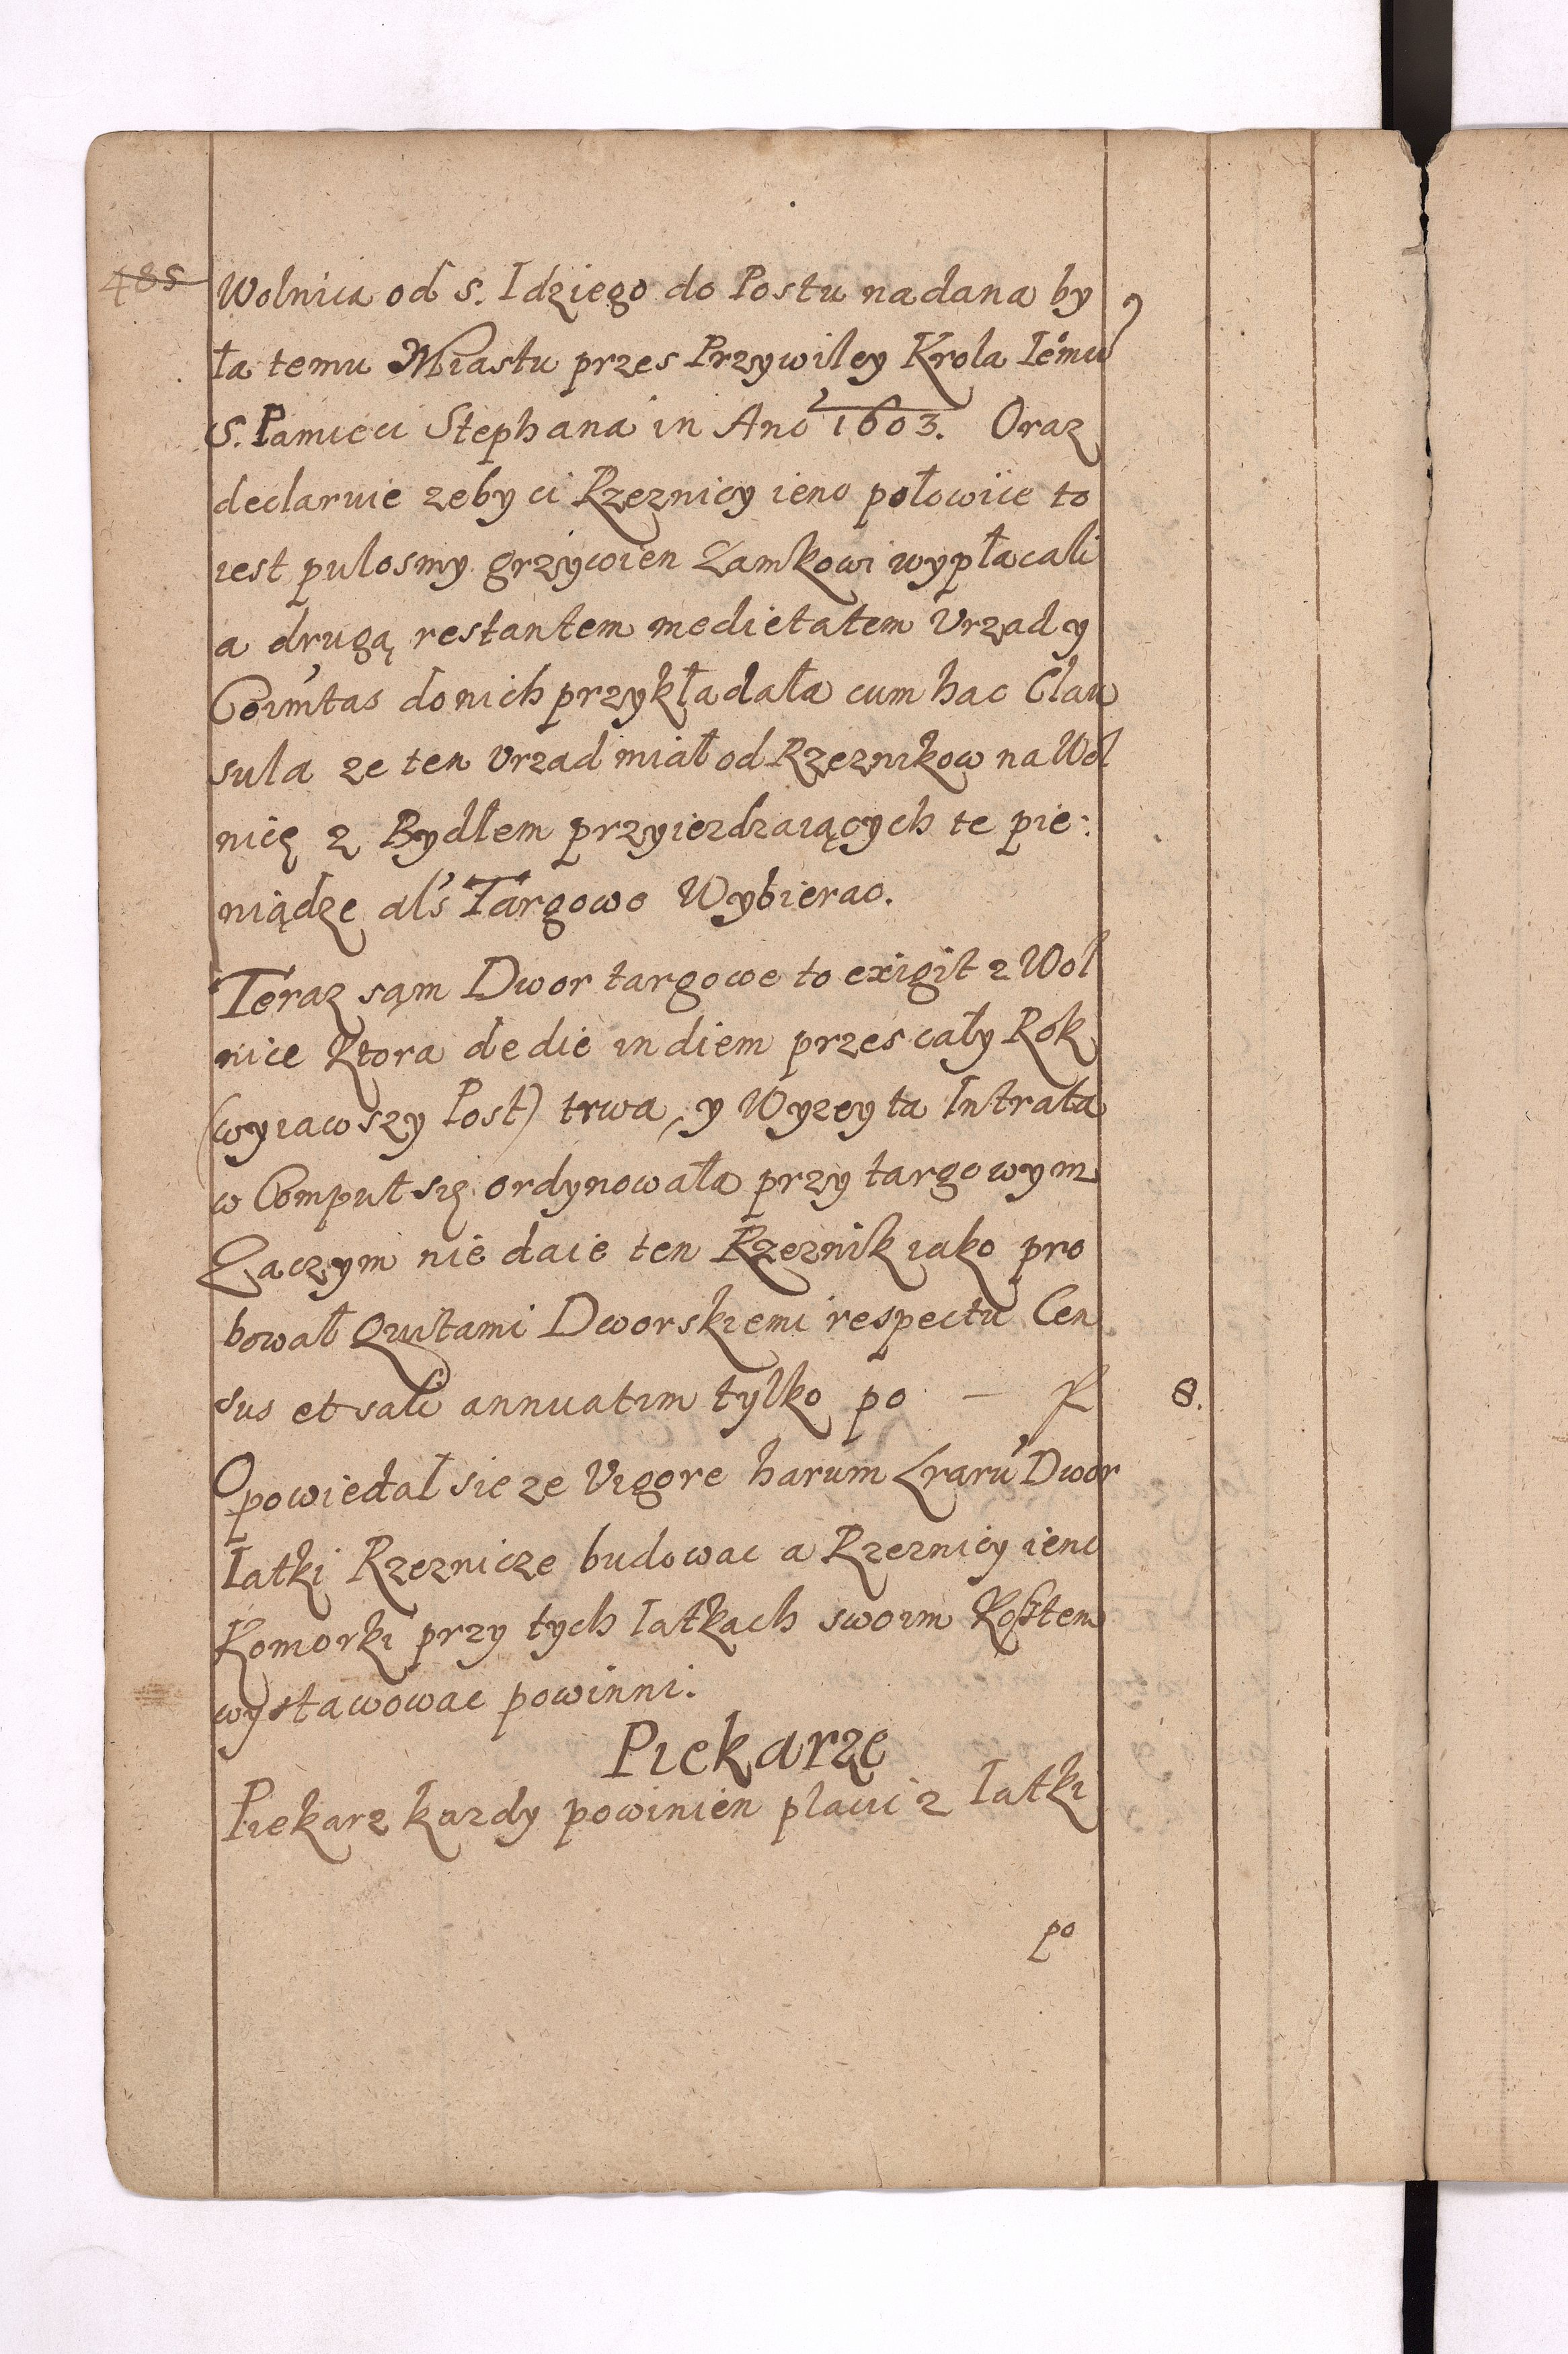 485
Wolnica od s. Idziego do Postu nadana by
ła temu Miastu przes Przywiley Krola Iemu
S. Pamieci Stephana in Ano 1603. Oraz
declaruie zeby ci Rzeznicy ieno połowiie to
iest pulosmy grzywien Zamkowi wypłacali
a drugą restantem medietatem Vrzad y
Coimtas do nich przykładała cum hac Clau
sula ze ten Vrzad miał od Rzeznikow na Wol
nicę z Bydłem przyiezdzaiących te pie:
niądze als Targowo Wybierac.
Teraz sąm Dwor targowe to exigit z Wol
nice Ktora de die in diem przes cały Rok
(wyiawszy Post) trwa, y Wyzey ta Intrata
w Comput się ordynowała przy targowym
Zaczym nie daie ten Rzeznik iako pro
bował Qwitami Dworskiemi respectu Cen
sus et sali annuatim tylko po — 8.
Opowiedal sie ze Vigore harum Lraru Dwor
Iatki Rzeznicze budowac a Rzeznicy ieno
Komorki przy tych Iatkach swoim Kosztem
wystawowac powinni.
Piekarze
Piekarz kazdy powinien placic z Iatki
po